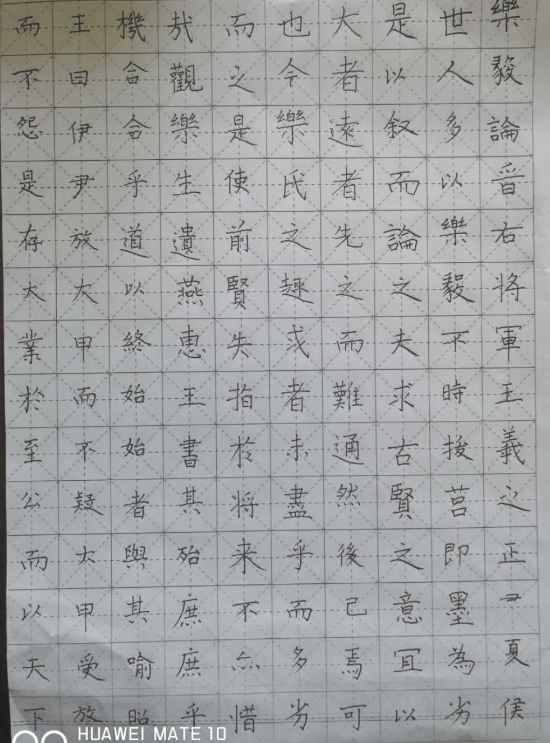 樂毅論晋右将軍王義之正夏侯
世人多以樂毅不時拔莒即墨為劣
是以叙而論之夫求古賢之意宜以
大者遠者先之而難通然後已焉可
也今樂氏之趣或者未盡乎而多劣
而之是使前賢失指於将来不亦惜
哉觀樂生遺燕惠王書其殆庶庶乎
機合合乎道以終始始者與其喻昭
王曰伊尹放大甲而不疑大甲受放
而不怨是存大業於至公而以天下
HUAWEI MATE 10